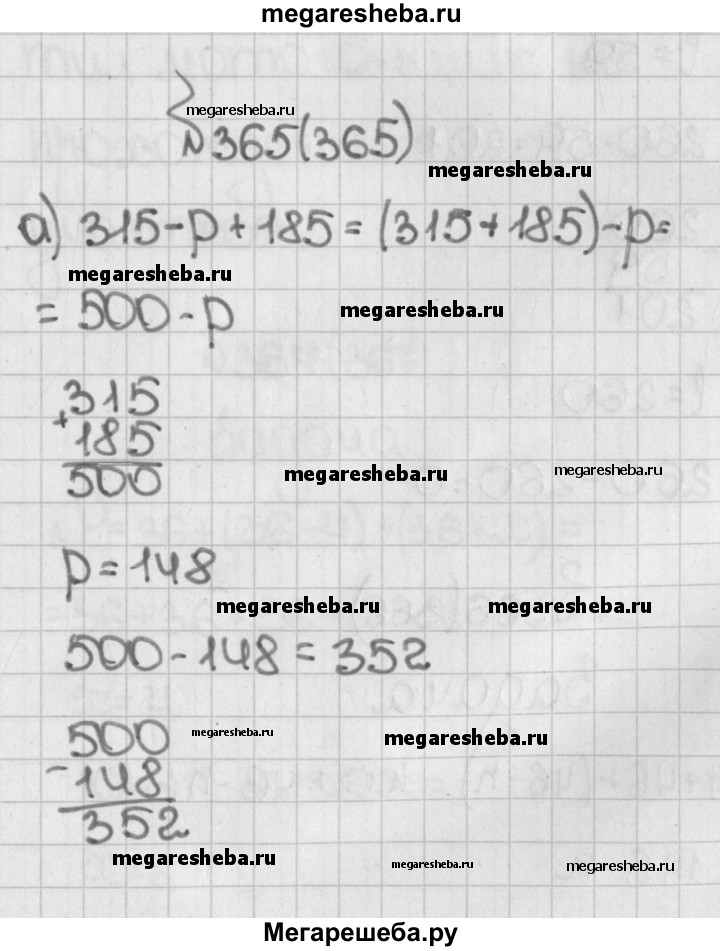 megaresheba.ru
megaresheba.ru
№365(365)
megaresheba.ru
а) 315-p+185=(315+185)-p=
megaresheba.ru
=500-p
megaresheba.ru
315
+
185
500
megaresheba.ru
megaresheba.ru
p=148
megaresheba.ru
megaresheba.ru
500-148=352
500
megaresheba.ru
megaresheba.ru
-148
352
megaresheba.ru
megaresheba.ru
megaresheba.ru
Мегарешеба.ру